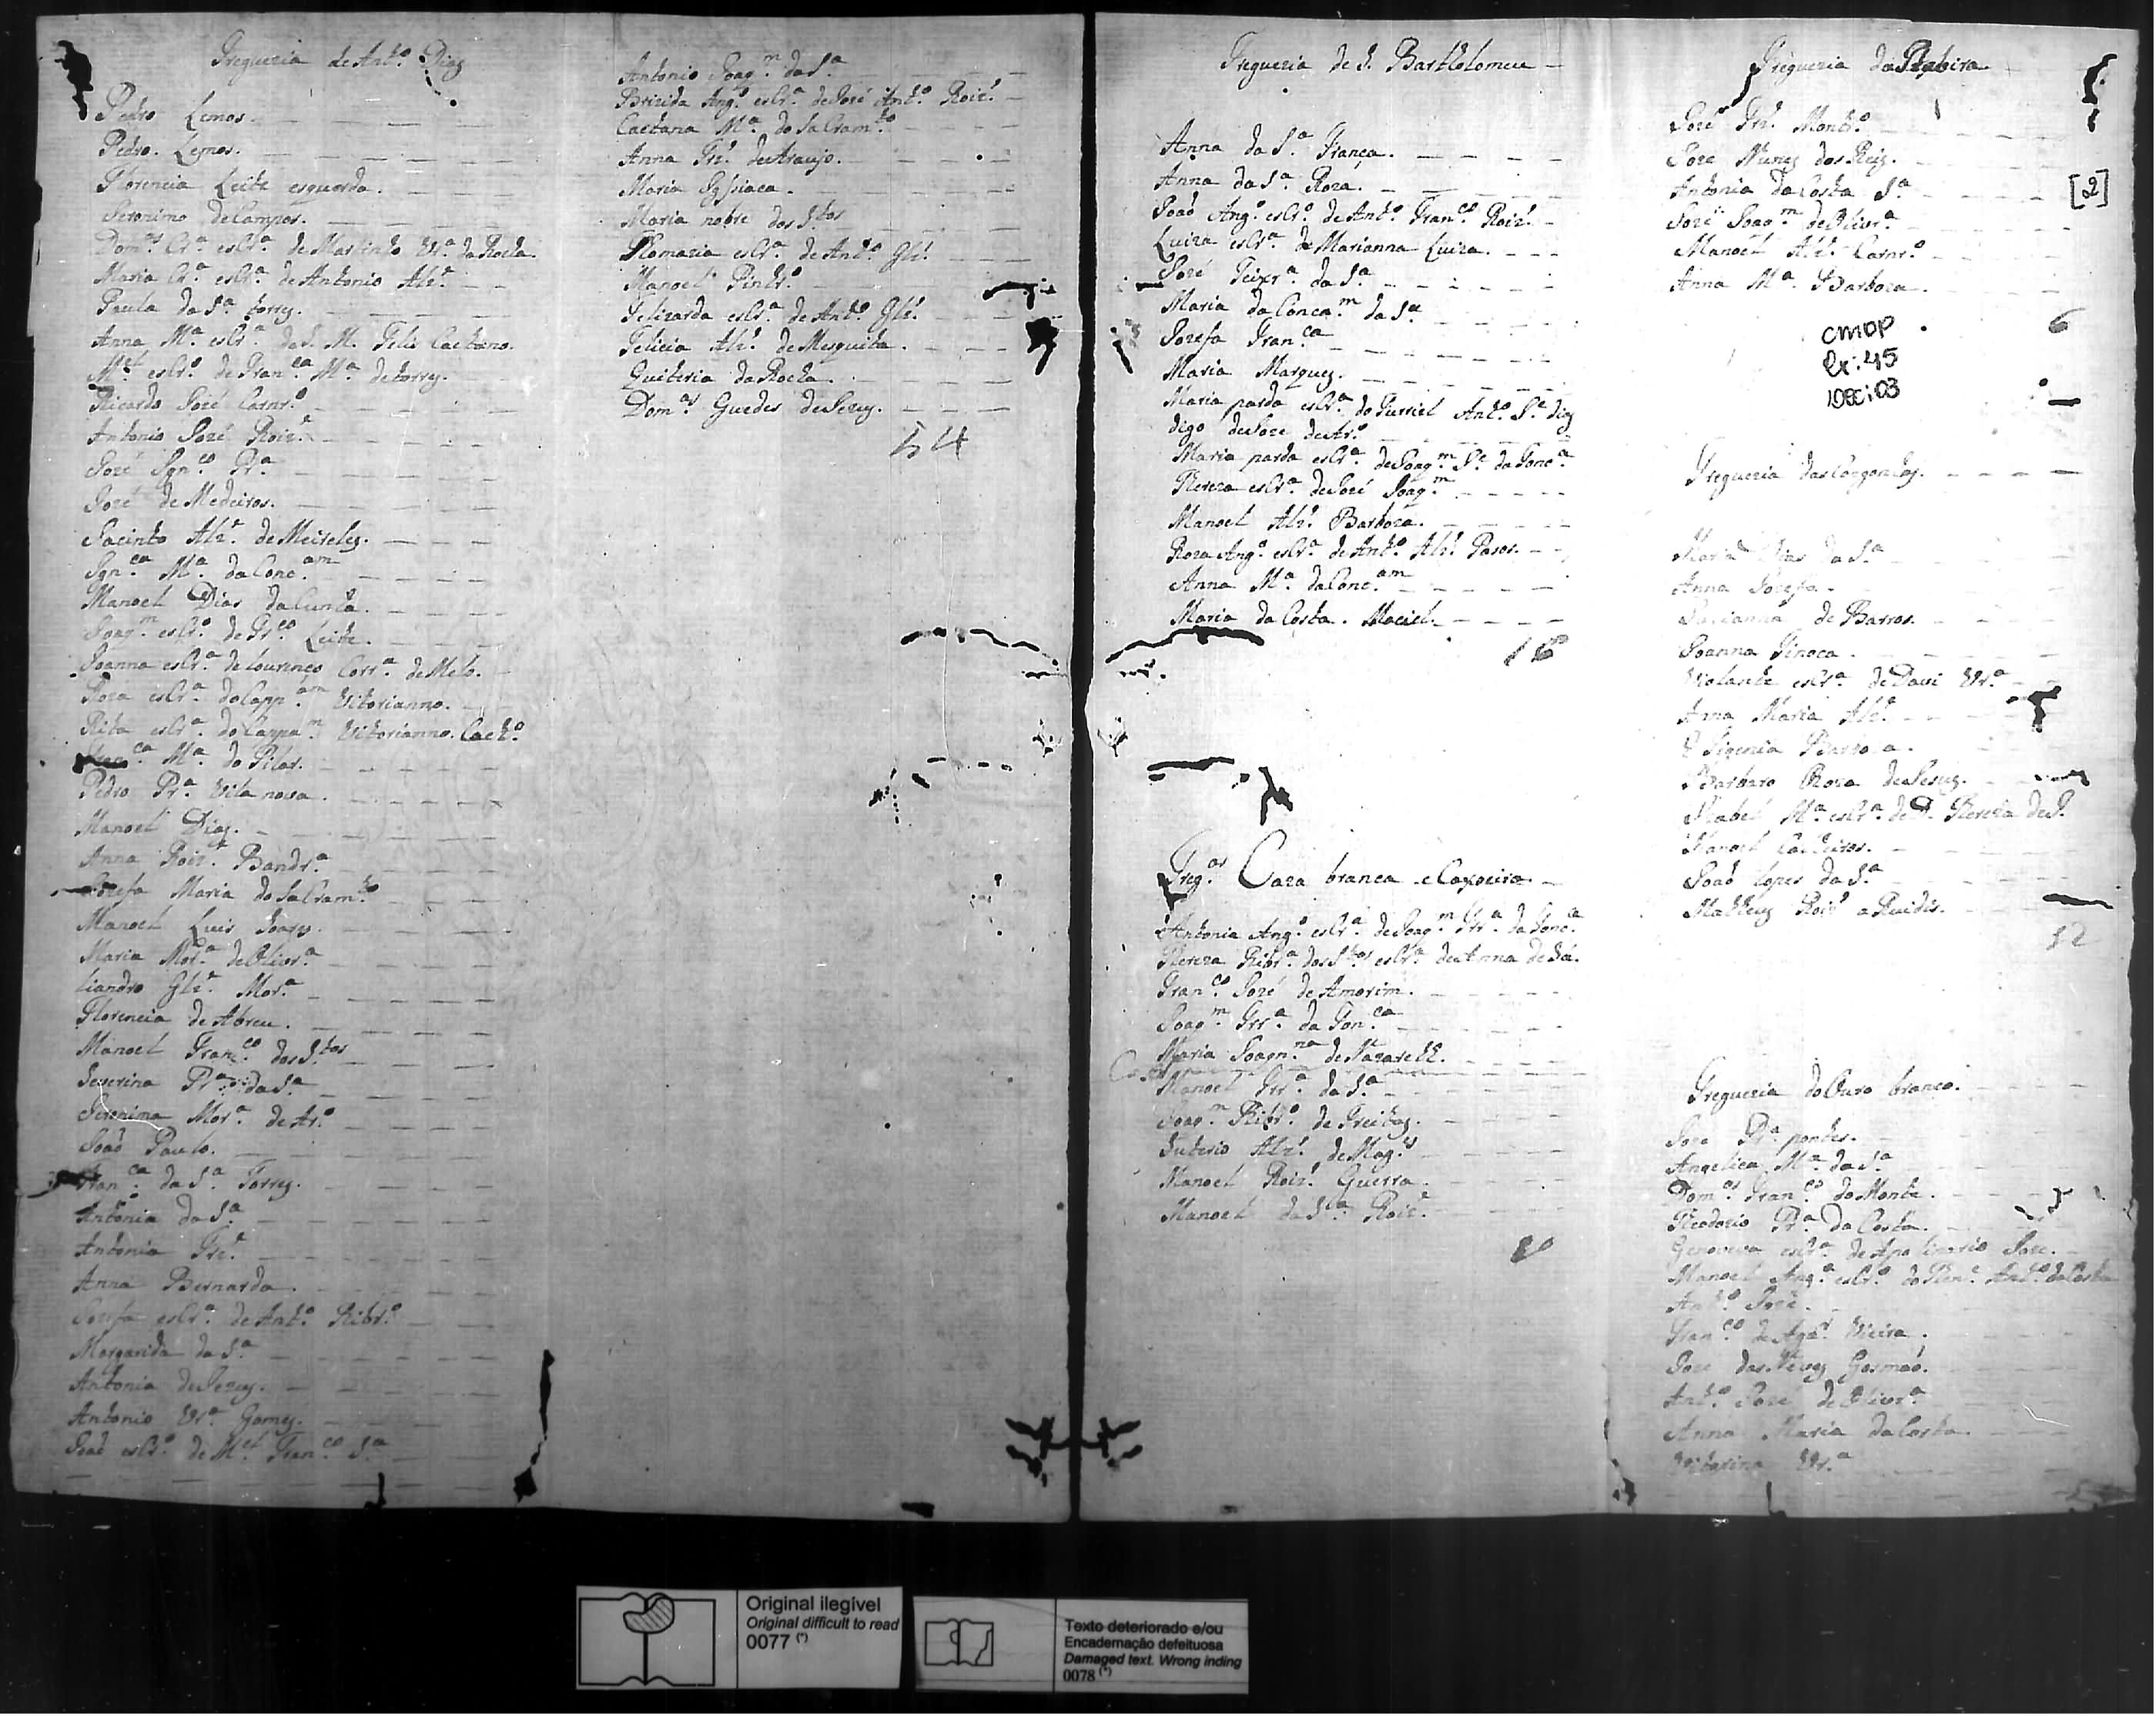 Freguezia de Ant.º Dias
Pedro Lemos.
Pedro. Lemos.
Florencia Leite esquerda.
Jeronimo de Campos.
Dom.as Cr.ª escr.ª de Martinho Vr.ª da Rocha
Maria Cr.ª escr.ª de Antonio Alz.
Paula da S.ª torres.
Anna M.ª escr.ª de S. M. Felis Caetano.
M.el escr.º de Fran.ca M.ª de torres.
Ricardo Jozé Carnr.º
Antonio Jozé Roiz.
Jozé Ign.co Pr.ª
Jozé de Medeiros.
Jacinto Alz. de Meireles.
Ign.ca M.ª da Conc.am
Manoel Dias da Cunha.
Joaq.m escr.º de Fr.co Leite.
Joanna escr.ª de Lourenço Corr.ª de Melo.
Roza escr.ª do Capp.am Vitorianno.
Rita escr.ª do Cappa.m Vitorianno Caet.º
Fran.ca M.ª do Pilar.
Pedro Pr.ª Vila nova.
Manoel Dias.
Anna Roiz. Bandr.ª
Jozefa Maria do Sacram.to
Manoel Luis Soares.
Maria Mor.ª de Olivr.ª
Liandro Glz. Mor.ª
Florencia de Abreu.
Manoel Fran.co dos S.tos
Severina Pr.ª da S.ª
Jeronima Mor.ª de Ar.º
João Paulo.
Fran.ca da S.ª Torres.
Antonia da S.ª
Antonia Frz.
Anna Bernarda.
Jozefa escr.ª de Ant.º Ribr.º
Margarida da S.ª
Antonia de Jezus.
Antonio Vr.ª Gomes.
João escr.º de M.el Fran.co S.ª
Antonio Joaq.m da S.ª
Brizida Ang.ª escr.ª de Jozé Ant.º Roiz.
Caetana M.ª do Sacram.to
Anna Frz. de Araujo.
Maria Egpsiaca.
Maria nobre dos S.tos
Romazia escr.ª de Ant.º Glz.
Manoel Pinhr.º
Felizarda escr.ª de Ant.º Glz.
Felicia Alz. de Mesquita.
Quiteria da Rocha.
Dom.as Guedes de Jezus.
54
Freguezia de S. Bartholomeu
Anna da S.ª França.
Anna da S.ª Roza.
João Ang.º escr.º de Ant.º Fran.co Roiz.
Luiza escr.ª de Marianna Luiza.
Jozé Teixr.ª da S.ª
Maria da Conca.m da S.ª
Jozefa Fran.ca
Maria Marques.
Maria parda escr.ª do Furriel Ant.º S.ª dias
digo de Joze de Ar.º
Maria parda escr.ª de Joaq.m S.ª da Fonc.ª
Thereza escr.ª de Jozé Joaq.m
Manoel Alz. Barboza.
Roza Ang.ª escr.ª de Ant.º Alz. Pasos.
Anna M.ª da Conc.am
Maria da Costa Maciel.
16
Freg.as Caza branca e Caxoeira
Antonia Ang.ª escr.ª de Joaq.m Frr.ª da Fonc.ca
Thereza Ribr.ª dos S.tos escr.ª de Anna de Sá.
Fran.co Jozé de Amorim.
Joaq.m Frr.ª da Fon.ca
Maria Joaqn.na de Nazareth.
Manoel Frr.ª da S.ª
Joaq.m Ribr.º de Freitas.
Luterio Alz. de Mag.es
Manoel Roiz. Guerra.
Manoel da S.ª Roiz.
10
Freguezia da Itabira
Jozé Frz. Montr.º
Joze Nunes dos Reis.
Antonia da Costa S.ª
[2]
Jozé Joaq.m de Olivr.ª
Manoel Alz. Carnr.º
Anna M.ª Barboza.
6
CMOP
Cx: 45
DOC: 03
Freguezia das Congonhas.
Maria Dias da S.ª
Anna Jozefa.
Marianna de Barros.
Joanna Tinoca.
Violante escr.ª de Davi Vr.ª
Anna Maria Alz.
Efigenia Barboza.
Barbara Roza de Jesus.
Izabel M.ª escr.ª de D. Thereza de J.
Manoel Calheiros.
João Lopes da S.ª
Matheus Roiz aRuidis.
12
Freguezia do Ouro branco.
Joze Pr.ª pontes.
Angelica M.ª da S.ª
Dom.os Fran.co do Monte.
Theodozio Pr.ª da Costa.
Genoveva escr.ª de Apolinario Joze.
Manoel Ang.ª escr.º do Ten.e Ant.º da Costa
Ant.º Joze.
Fran.co de Ag.ar Vieira.
Joze das Neves Gosmão.
Ant.º Jozé de Olivr.ª
Anna Maria da Costa.
Vitorina Vr.ª
Original ilegível
Original difficult to read
0077 (*)
Texto deteriorado e/ou
Encadernação defeituosa
Damaged text. Wrong inding
0078 (*)